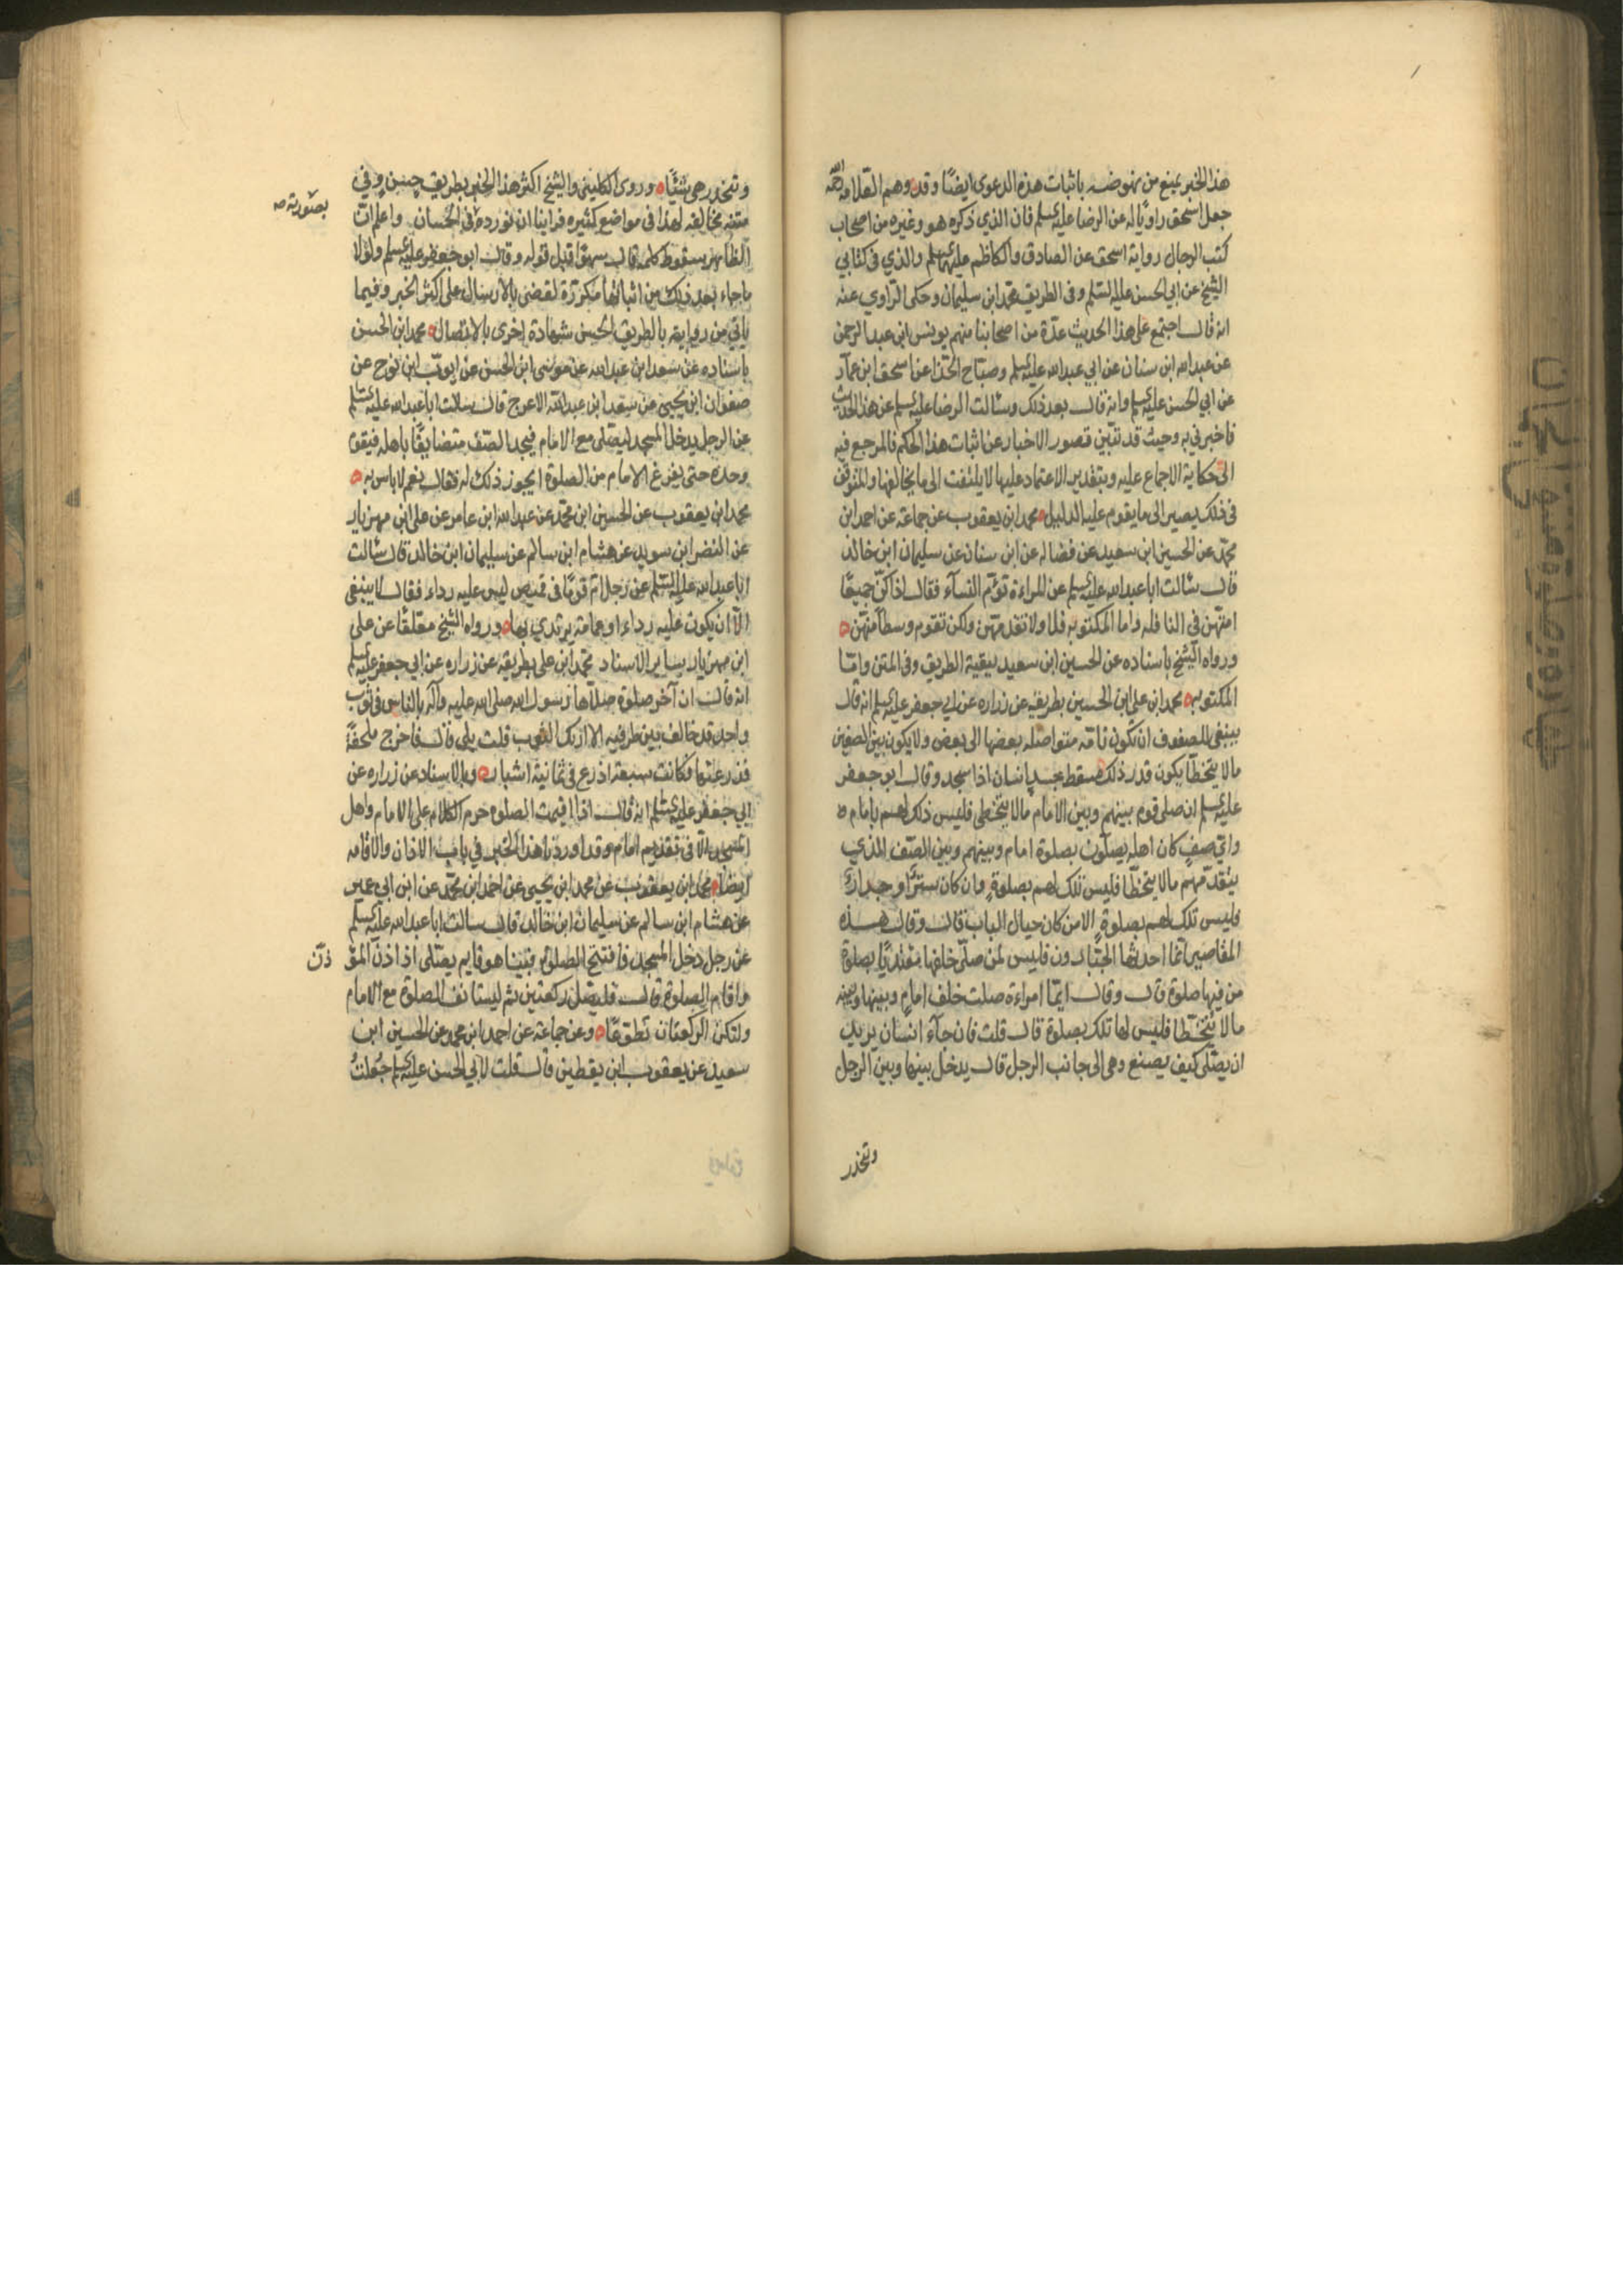 هذا الخبر يمنع من نهوضه باثبات هذه الدعوى ايضًا وقد وهم العلامه
جعل اسحق راويًا له عن الرضا عليه السلم فان الذي ذكره هو وغيره من اصحاب
كتب الرجال رواية اسحق عن الصادق والكاظم عليهما السلم والذي في كتابي
الشيخ عن ابي الحسن عليه السلم وفى الطريق محمد ابن سليمان وحكى الراوي عنه
انه قال اجتمع على هذا الحديث عدّة من اصحابنا منهم يونس ابن عبد الرحمن
عن عبد الله ابن سنان عن ابي عبد الله عليه السلم وصباح الحذا عن اسحق ابن عمار
عن ابي الحسن عليه السلم وانه قال بعد ذلك وسالت الرضا عليه السلم عن هذا الحديث
فاخبرني به وحيث قد تبين قصور الاخبار عن اثبات هذا الحكم فالمرجع فيه
الى حكاية الاجماع عليه وبتقدير الاعتماد عليها لا يلتفت الى ما يخالفها والمتوقف
في ذلك يصير الى ما يقوم عليه الدليل محمد ابن يعقوب عن جماعة عن احمد ابن
محمد عن الحسين ابن سعيد عن فضاله عن ابن سنان عن سليمان ابن خالد
قال سالت ابا عبد الله عليه السلم عن المراءة تؤم النساء فقال اذا كن جميعًا
امتهن في النافله واما المكتوبه فلا ولا تقدمهن ولكن تقوم وسطًا منهن
ورواه الشيخ باسناده عن الحسين ابن سعيد ببقية الطريق وفى المتن وامّا
المكتوبه محمد ابن على ابن الحسين بطريقه عن زراره عن ابي جعفر عليه السلم انه قال
ينبغي للصفوف ان تكون تامّه متواصله بعضها الى بعض ولا يكون بين الصفين
مالا يتخطّا يكون قدر ذلك مسقط جسد انسان اذا سجد وقال ابو جعفر
عليه السلم ان صلى قوم بينهم وبين الامام مالا يتخطى فليس ذلك لهم بامام
واي صفٍ كان اهله يصلّون بصلوة امام وبينهم وبين الصّف الذي
يتقدّمهم مالا يتخطّا فليس تلك لهم بصلوةٍ وان كان سترًا او جدارًا
فليس تلك لهم بصلوةٍ الا من كان حيال الباب قال وقال هذه
المقاصير انّما احدثها الجبّارون فليس لمن صلّى خلفها مقتديًا بصلوة
من فيها صلوة قال وقال ايّما امراءة صلت خلف امامٍ وبينها وبينه
مالا يتخطّا فليس لها تلك بصلوة قال قلت فان جآء انسان يريد
ان يصلّى كيف يصنع وهى الى جانب الرجل قال يدخل بينها وبين الرجل
وتنحدر
وتنحدر هى شيئًا وروى الكلينى والشيخ اكثر هذا الخبر بطريق حسن وفي
متنه مخالفه لهذا فى مواضع كثيره فراينا ان نورده فى الحسان واعلم انّ
بصورته
الظاهر سقوط كلمة قال سهوًا قبل قوله وقال ابو جعفر عليه السلم ولولا
ما جاء بعد ذلك من اثباتها مكررة لقضى بالارسال على اكثر الخبر وفيما
ياتي من روايته بالطريق الحسن شهادة اخرى بالاتصال محمد ابن الحسن
باسناده عن سعد ابن عبد الله عن موسى ابن الحسن عن ايوب ابن نوح عن
صفوان ابن يحيى عن سعد ابن عبد الله الاعرج قال سالت ابا عبد الله عليه السلم
عن الرجل يدخل المسجد ليصلى مع الامام فيجد الصّف متضايقًا باهله فيقوم
وحده حتى يفرغ الامام من الصلوة ايجوز ذلك له فقال نعم لاباس به
محمد ابن يعقوب عن الحسين ابن محمد عن عبد الله ابن عامر عن على ابن مهزيار
عن النضر ابن سويد عن هشام ابن سالم عن سليمان ابن خالد قال سالت
ابا عبد الله عليه السلم عن رجل امّ قومًا فى قميص ليس عليه رداء فقال لا ينبغى
الاّ ان يكون عليه رداء او عمامة يرتدي بها ورواه الشيخ معلقًا عن على
ابن مهزيار بساير الاسناد محمد ابن على بطريقه عن زراره عن ابي جعفر عليه السلم
انه قال ان آخر صلوة صلاّها رسول الله صلى الله عليه وآله بالناس فى ثوب
واحد قد خالف بين طرفيه الا اريك الثوب قلت بلى قال فاخرج ملحفةً
فذرعتها فكانت سبعة اذرع فى ثمانية اشبار وبالاسناد عن زراره عن
ابي جعفر عليه السلم انه قال اذا اقيمت الصلوة حرم الكلام على الامام واهل
المسجد الاّ فى تقديم امام وقد اوردنا هذا الخبر في باب الاذان والاقامه
ايضًا محمد ابن يعقوب عن محمد ابن يحيى عن احمد ابن محمد عن ابن ابي عمير
عن هشام ابن سالم عن سليمان ابن خالد قال سالت ابا عبد الله عليه السلم
عن رجل دخل المسجد فافتتح الصلوة فبينا هو قايم يصّلى اذ اذن المؤ
ذّن
واقام الصلوة قال فليصل ركعتين ثم ليستانف الصلوة مع الامام
ولتكن الركعتان تطوّعًا وعن جماعة عن احمد ابن محمد عن الحسين ابن
سعيد عن يعقوب ابن يقطين قال قلت لابي الحسن عليه السلم جُعلتُ